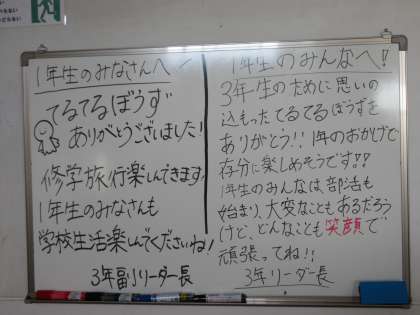 1年生のみなさんへ
てるてるぼうず
ありがとうございました!
修学旅行楽しんできます!
1年生のみなさんも
学校生活楽しんでくださいね!
3年副リーダー長
1年生のみんなへ!
3年生のために思いの
込もったてるてるぼうずを
ありがとう!!1年のおかげで
存分に楽しめそうです!!
1年生のみんなは、部活も
始まり、大変なこともあるだろう
けど、どんなことも笑顔で
頑張ってね!!
3年リーダー長